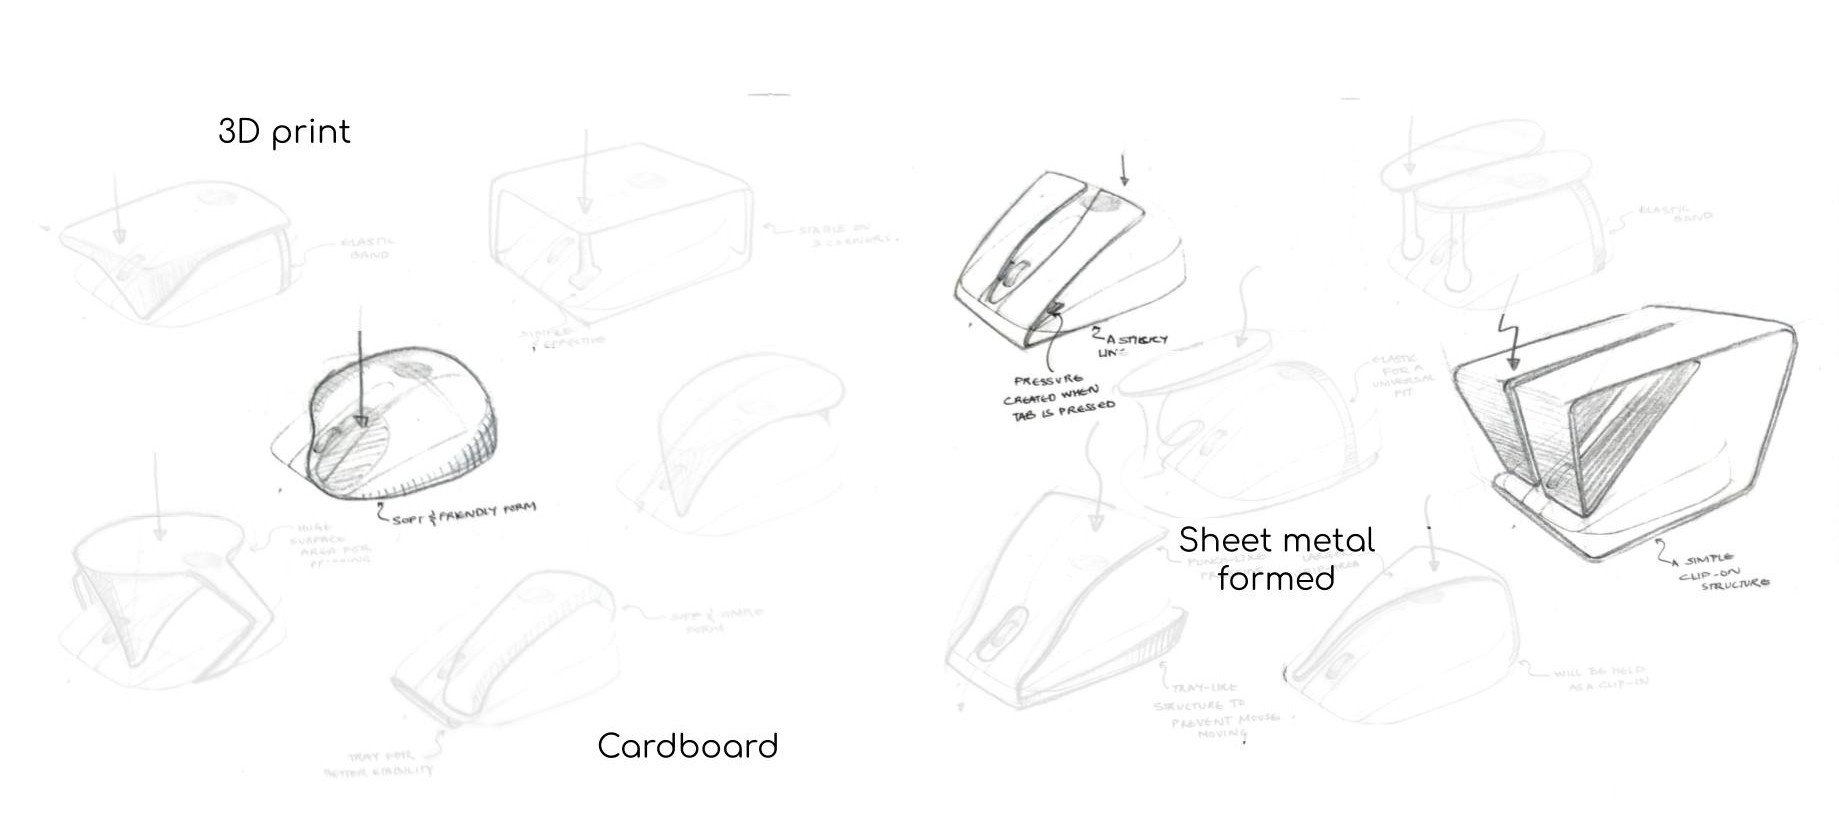 3D print
ELASTIC
BAND
STABLE ON
3 CORNERS.
SIMPLE
EFFECTIVE
SOFT & FRIENDLY FORM
HUGE
SURFACE
AREA FOR
SOFT & SIMPLE
FORM
TRAY FOR
BETTER STABILITY
Cardboard
A STICKY
LINE
PRESSURE
CREATED WHEN
TAB IS PRESSED
ELASTIC
BAND
ELASTIC
FOR A
UNIVERSAL
FIT
Sheet metal
formed
A SIMPLE
CLIP-ON
STRUCTURE
TRAY-LIKE
STRUCTURE TO
PREVENT MOUSE
MOVING
WILL BE HELD
AS A CLIP-IN